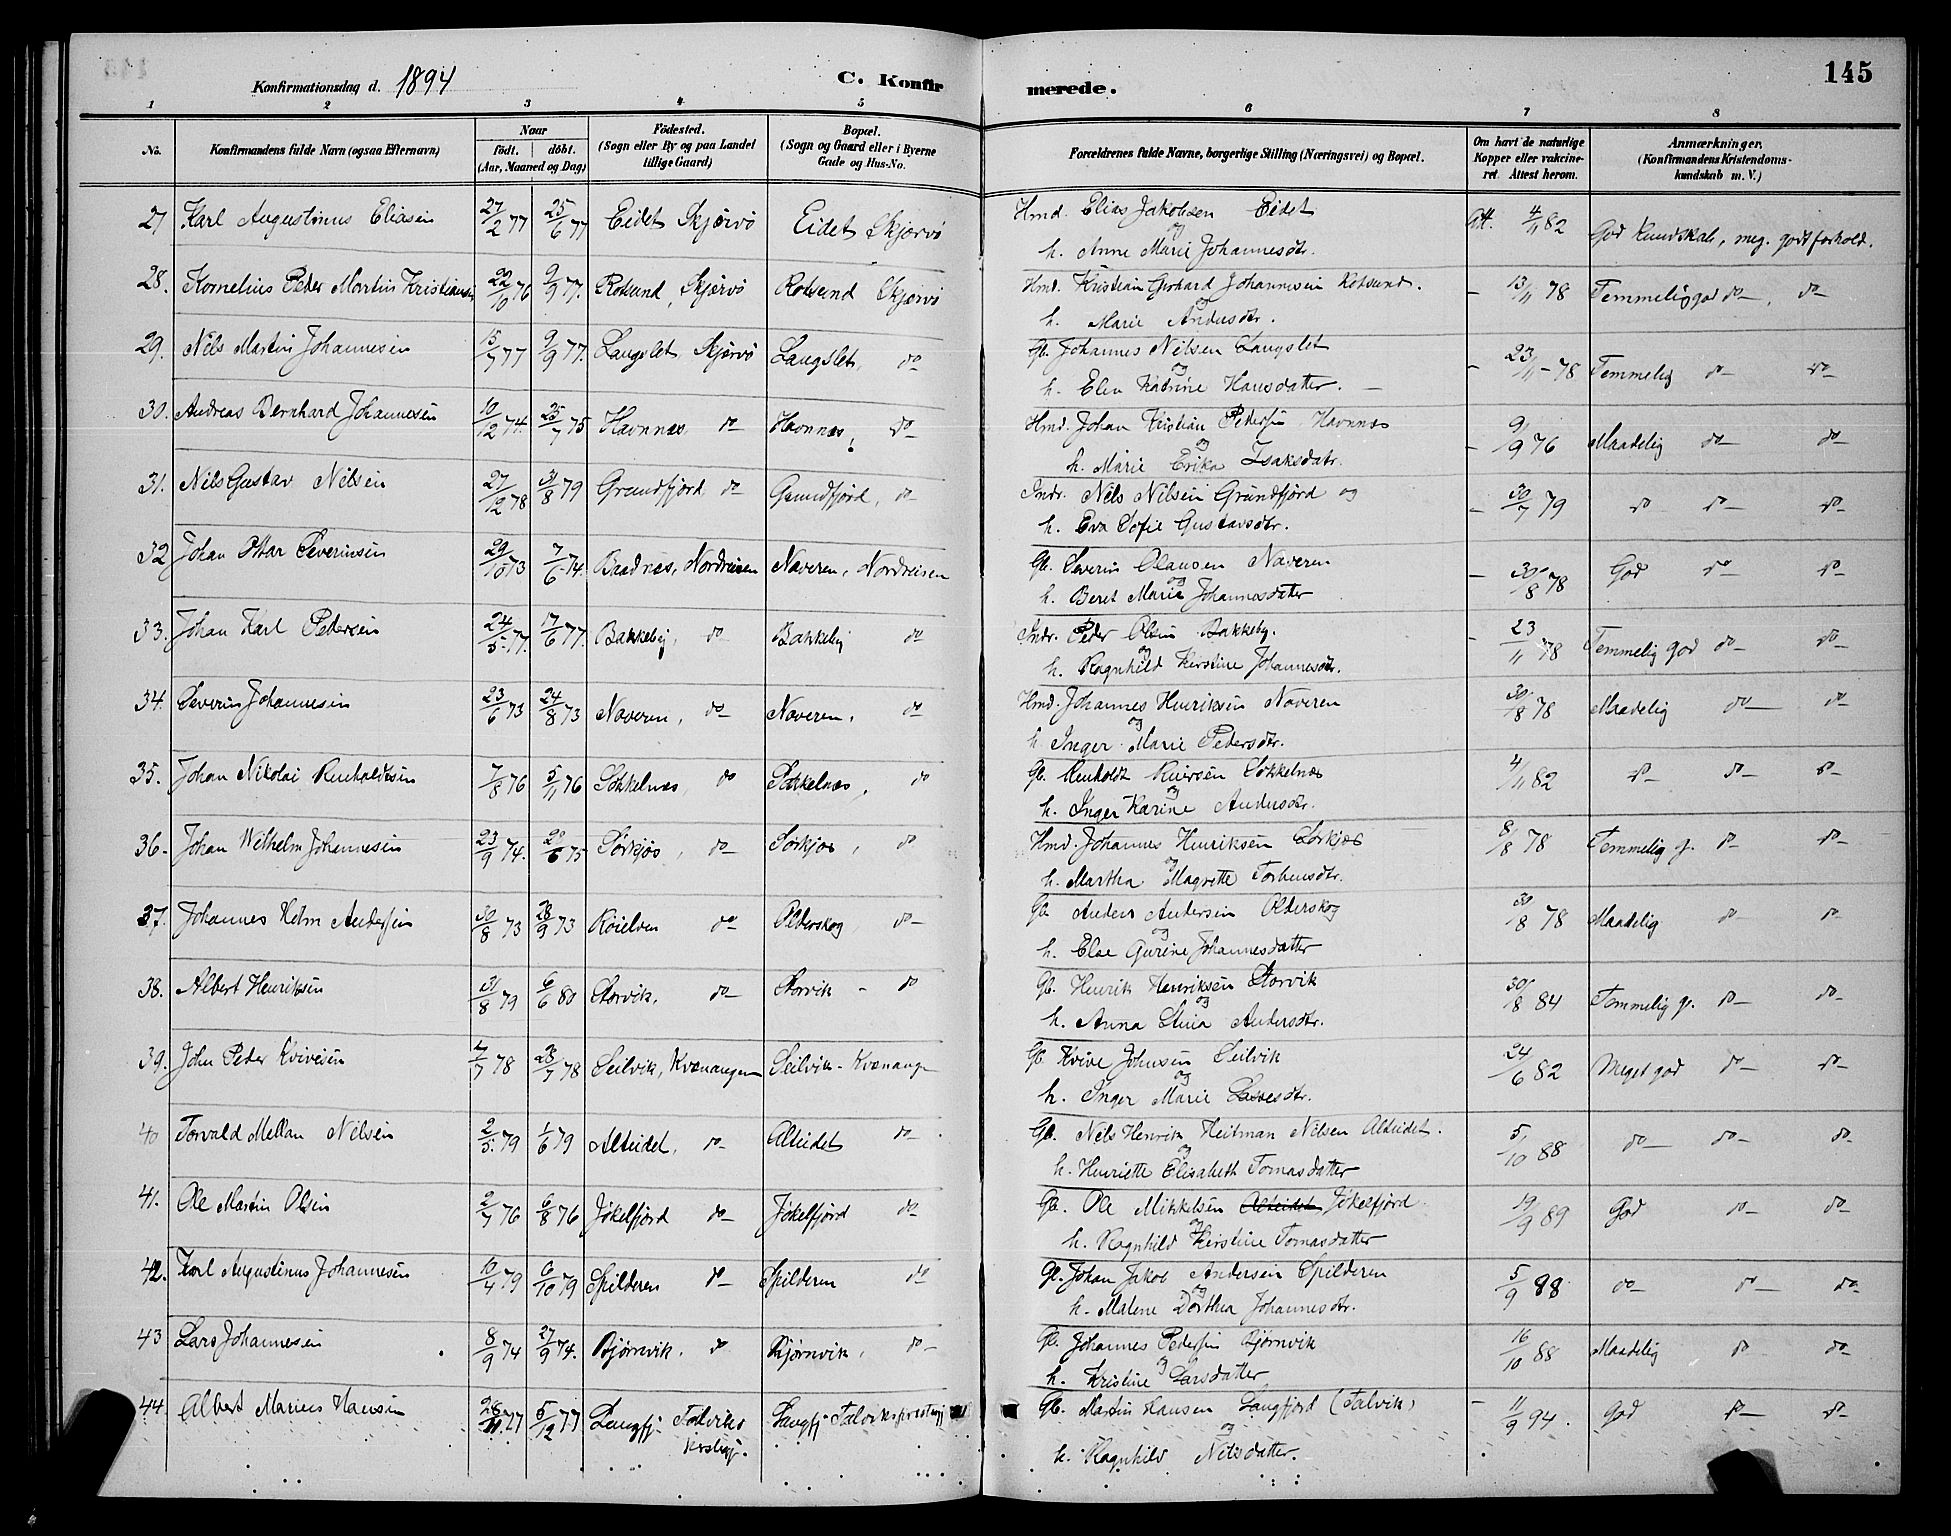 145
Konfirmationsdag d. 1894
C. Konfirmerede.
1 2 3 4 5 6 7 8
No. Konfirmandens fulde Navn (ogsaa Efternavn) Naar født. døbt. (Aar, Maaned og Dag) Födested. (Sogn eller By og paa Landet tillige Gaard) Bopæl. (Sogn og Gaard eller i Byerne Gade og Hus-No. Forældrenes fulde Navne, borgerlige Stilling (Næringsvei) og Bopæl. Om havt de naturlige Kopper eller vakcineret. Attest herom. Anmærkninger. (Konfirmandens Kristendomskundskab m. V.)
27 Karl Augustinus Eliasen 27/2 77 25/6 77 Eidet Skjervö Eidet Skjervö Hmd. Elias Jakobsen Eidet Att. 4/11 82 God Kundskab, meg. godt forhold.
og
h. Anne Marie Johannesdtr.
28. Kornelius Peder Martin Kristiansen 22/10 76 9/9 77. Rotsund, Skjervö Rotsund Skjervö Hmd. Kristian Gerhard Johannesen Rotsund. - 13/11 78 Temmelig god do-, do-
og
h. Marie Andersdtr.
29. Nils Martin Johannesen 15/7 77 9/9 77. Langslet Skjervö Langslet, do Gb. Johannes Nilsen Langslet - 23/11 - 78 Temmelig do- do-
og
h. Elen Katrine Hansdatter. -
30. Andreas Bernhard Johannesen 10/12 74. 25/7 75 Havnnæs, do- Havnnæs, do- Hmd. Johan Kristian Pedersen Havnnæs - 9/9 76 Maadelig do- do-
og
h. Marie Erika Isaksdatr.
31. Nils Gustav Nilsen 27/12 78 31/8 79 Grundfjord do- Grundfjord, do- Indr. Nils Nilsen Grundfjord og - 30/7 79 do do- do-
h. Eva Sofie Gustavsdtr.
32 Johan Ottar Severinsen 29/10 73 7/6 74. Baadnes, Nordreisen Naveren, Nordreisen Gb. Severin Olausen Naveren - 30/8 78 God do- do-
og
h. Beret Marie Johannesdatter
33. Johan Karl Petersen 24/5 77. 17/6 77. Bakkeby, do- Bakkeby do Indr. Peder Olsen Bakkeby. - 23/11 78 Temmelig God do- do-
og
h. Ragnhild Kirstine Johannesdtr.
34. Severin Johannesen 23/6 73 24/8 73 Naveren, do- Naveren, do- Hmd. Johannes Henriksen Naveren 30/8 78 Maadelig do- do-
og
h. Inger Marie Pedersdtr.
35. Johan Nikolai Renholdtsen 7/8 76 5/11 76 Sokkelnæs, do Sokkelnæs, do Gb. Renholdt Sokkelnæs 4/11 82 do- do- do-
og
h. Inger Karine Andersdtr.
36. Johan Wilhelm Johannesen 23/9 74. 6 75 Sørkjos, do- Sørkjos, do Hmd. Johannes Henriksen Sørkjos 8/8 78 Temmelig g. do- do-
og
h. Martha Magrette
37. Johannes Holm Andersen 30/8 73 28/9 73 Røielen do- Olderskog, do- Gb. Anders Andersen Olderskog 30/8 78 Maadelig do- do-
og
h. Else Gurine Johannesdatter
38. Albert Henriksen 31/8 79 6/6 80 Storvik, do- Storvik - do Gb. Henrik Henriksen Storvik 30/8 84 Temmelig g. do- do-
og
h. Anna Stina Andersdtr.
39. John Peder Kvivesen 2/7 78 28/7 78 Seilvik, Kvænangen Seilvik - Kvænangen Gb. Kvive Johnsen Seilvik 24/6 82 Meget god do- do-
og
h. Inger Marie Lassesdtr.
40 Torvald Mellan Nilsen 2/5 79 1/6 79 Alteidet, do- Alteidet do- Gb. Nels Henrik Heitman Nilsen Alteidet. 5/10 88 do- do- do-
og
h. Henriette Elisabeth Tomasdatter
41. Ole Martin Olsen 2/7 76 6/8 76 Jökelfjord do- Jökelfjord do- Gb. Ole Mikkelsen Alteidet Jökelfjord 19/9 89 God do- do-
og
h. Ragnhild Kirstine Tomasdatter
42. Karl Augustinus Johannesen 10/4 79 6/10 79 Spilderen do- Spilderen do Gb. Johan Jakob Andersen Spilderen 5/9 88 do- do- do-
og
h. Malene Dorthea Johannesdtr.
43 Lars Johannesen 8/9 74 27/9 74. Bjørnvik, do Bjørnvik, do- Gb. Johannes Pedersen Bjørnvik 16/10 88 Maadelig do- do-
og
h. Kristine Larsdatter
44. Albert Marius Hansen 28/11 77 5/12 77 Langfj. Talviks Langfj. Talviks Gb. Martin Hansen Langfjord (Talvik) - 11/9 94. God do- do-
og
h. Ragnhild Nilsdatter.